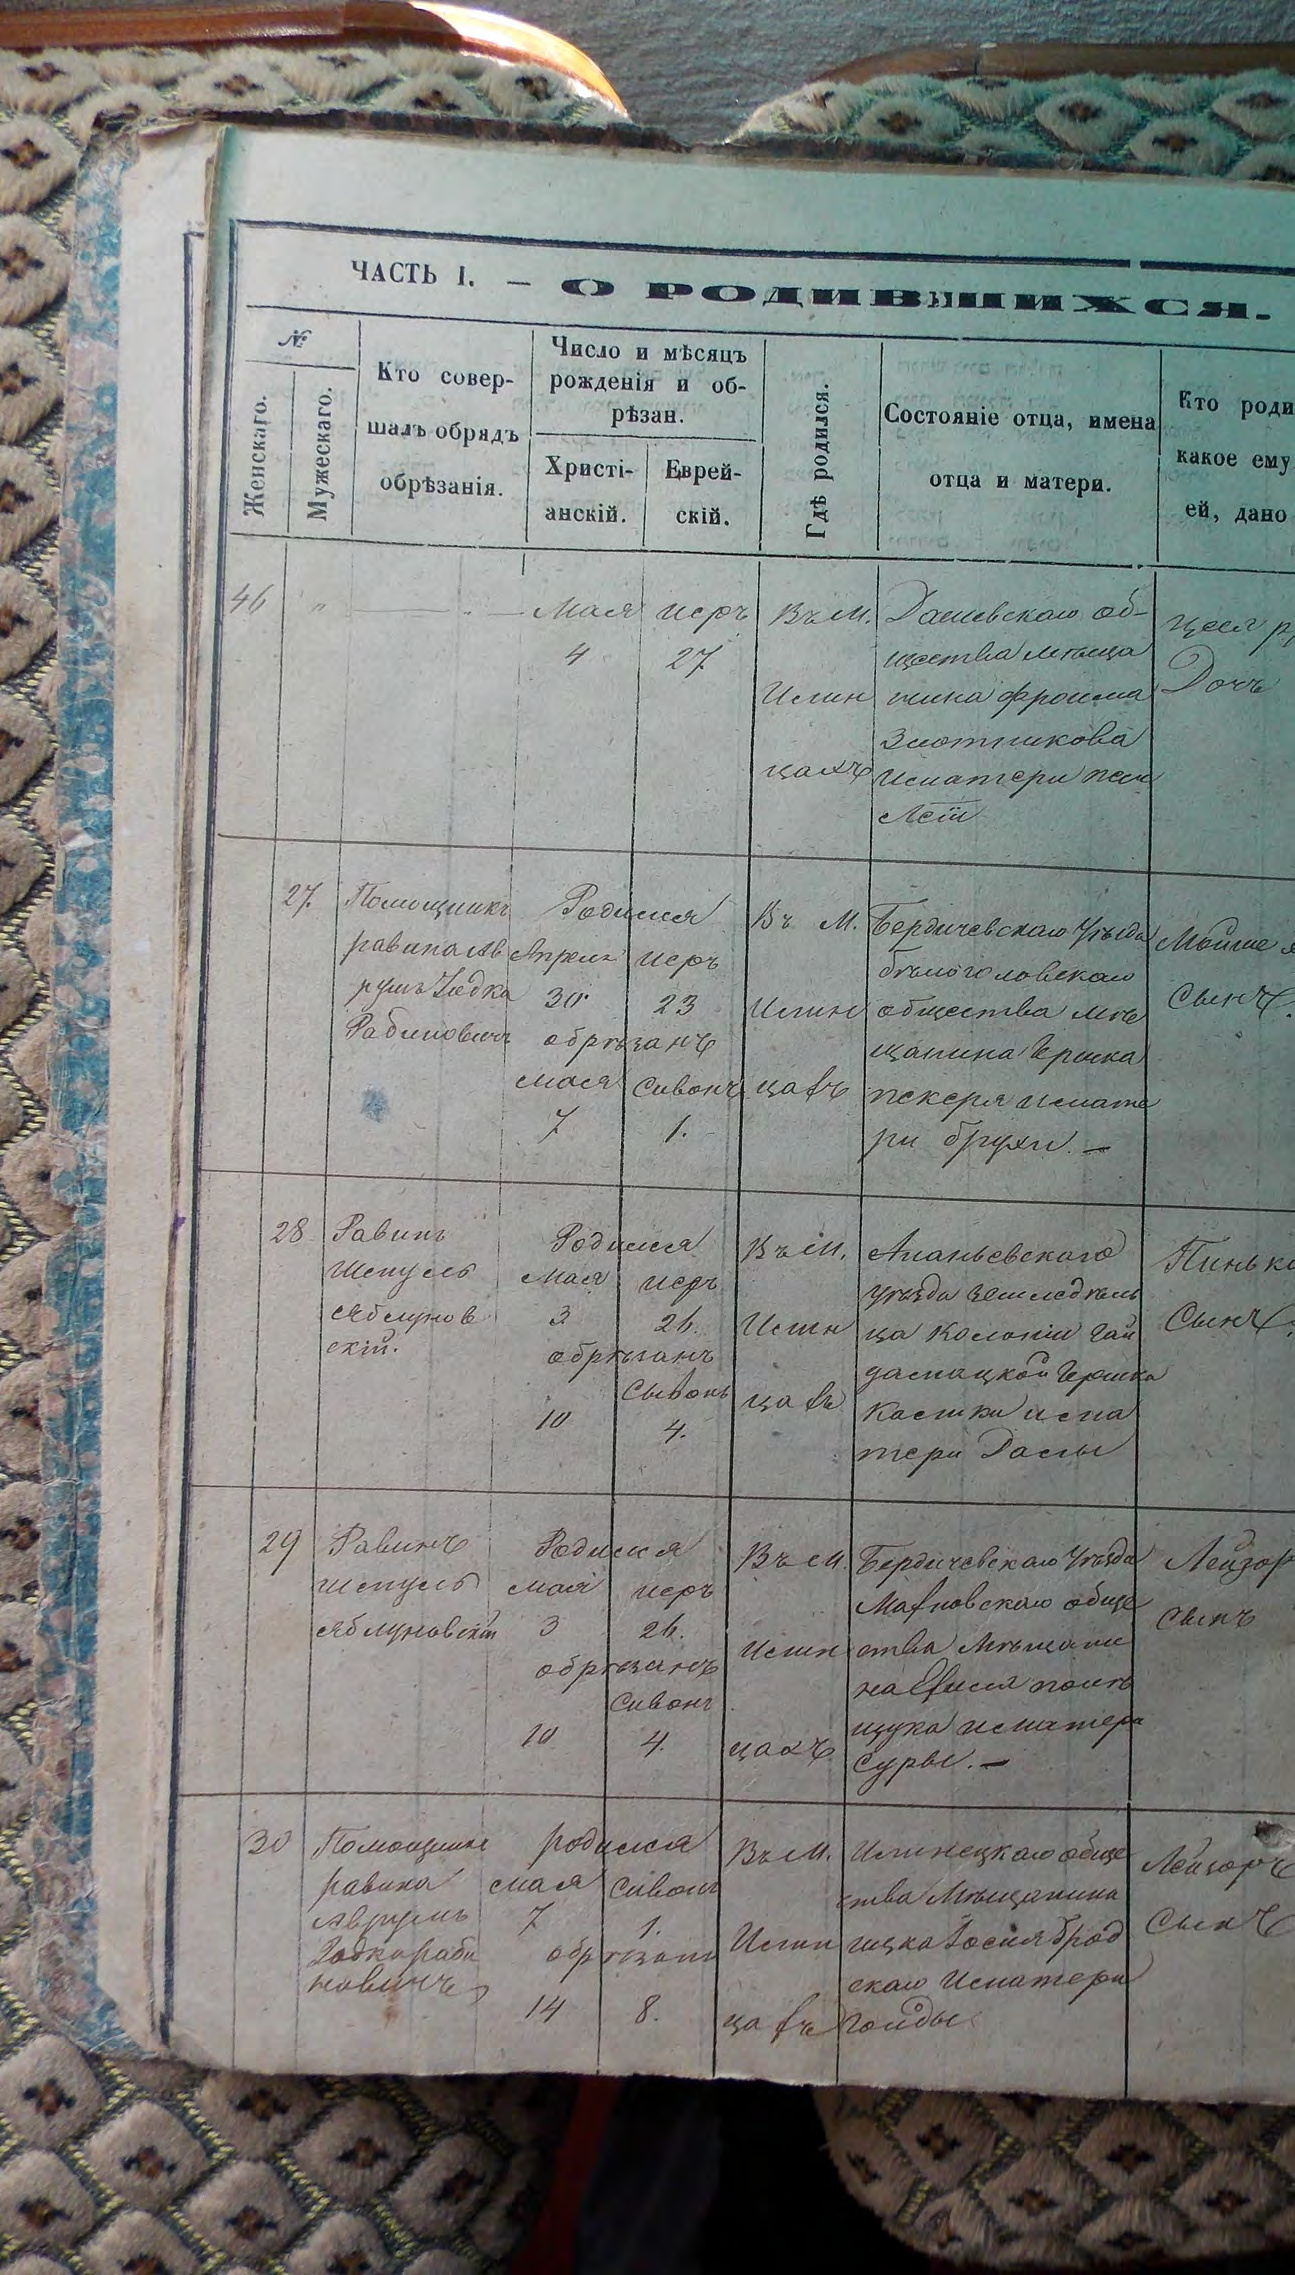 ЧАСТЬ I. — О РОДИВШИХСЯ.
№
Женскаго.
Мужескаго.
Кто совер-
шалъ обрядъ
обрѣзанія.
Число и мѣсяцъ
рожденія и об-
рѣзан.
Христі-
анскій.
Еврей-
скій.
Гдѣ родился.
Состояніе отца, имена
отца и матери.
Кто роди
какое ему
ей, дано
46
"
Мая
4
иеръ
27
Въ М.
Илин
цахъ
Дашевскаго об-
щества мѣща
нина Фроима
Злотникова
иматери
Цесл
Дочь
27.
Помощникъ
равина Ав
румъ Іадка
Рабиновичъ
Родился
Апреля иеръ
30 23
обрѣзанъ
мая Сивонъ
7 1.
Въ М.
Илин
цахъ
Бердичевскаго Уѣзда
бѣлоголовскаго
общества мѣ
щанина Гершка
пекеря имате
ри брухи. —
Мойше
Сынъ.
28
Равинъ
Шмуль
Яблунов
скій.
Родился
мая иеръ
3 26.
обрѣзанъ
Сывонъ
10 4.
Въ М.
Илин
цахъ
Ананьевскаго
уѣзда Земледѣль
ца Колоніи Гай
дамацкой Гершка
има
тери
Пинько
Сынъ.
29
Равинъ
Шмуль
Яблуновскій
Родился
мая иеръ
3 26.
обрѣзанъ
Сивонъ
10 4.
Въ М.
Илин
цахъ
Бердичевскаго Уѣзда
Махновскаго обще
ства Мѣщани
на
щука иматери
Суры. —
Лейзор
Сынъ
30
Помощника
равина
Аврумъ
Іадка Раби
новичъ
родился
мая Сивонъ
7 1.
обрѣзанъ
14 8.
Въ М.
Илин
цахъ
Илинецкаго обще
ства Мѣщанина
Іосия Брод
скаго Иматери
Гойды
Лейзоръ
Сынъ